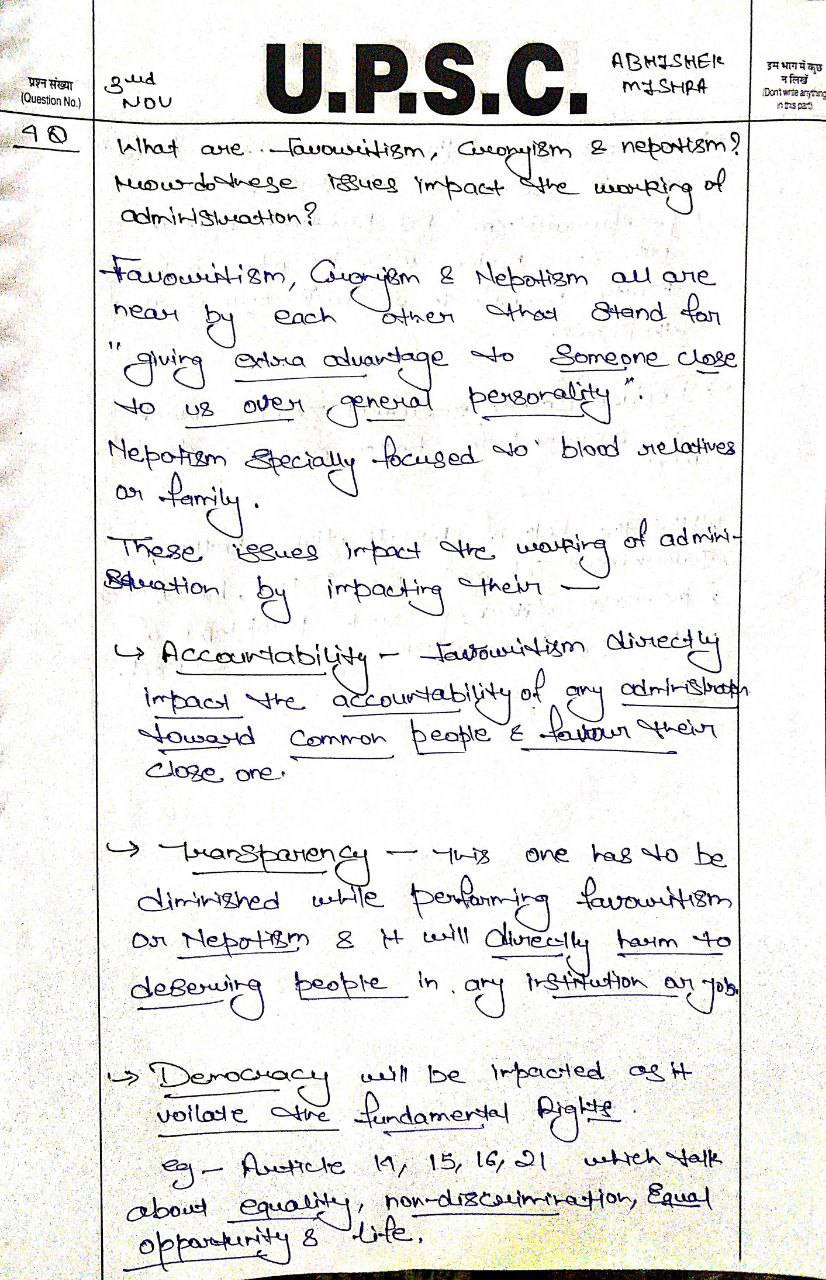 प्रश्न संख्या
(Question No.)
3rd
NOV
U.P.S.C.
ABHISHEK
MISHRA
इस भाग में कुछ
न लिखें
(Don't write anything
in this part)
What are favouritism, Cronyism & nepotism?
How do these issues impact the working of
administration?
Favouritism, Cronyism & Nepotism all are
near by each other that stand for
"giving extra advantage to someone close
to us over general personality".
Nepotism specially focused to blood relatives
or family.
These issues impact the working of admini-
stration by impacting their —
↳ Accountability - favouritism directly
impact the accountability of any administratn
toward common people & favour their
close one.
→ Transparency - This one has to be
diminished while performing favouritism
or Nepotism & it will directly harm to
deserving people in any institution or job.
→ Democracy will be impacted as it
voilate the fundamental Rights.
eg - Article 14, 15, 16, 21 which talk
about equality, non-discrimination, Equal
opportunity & life.